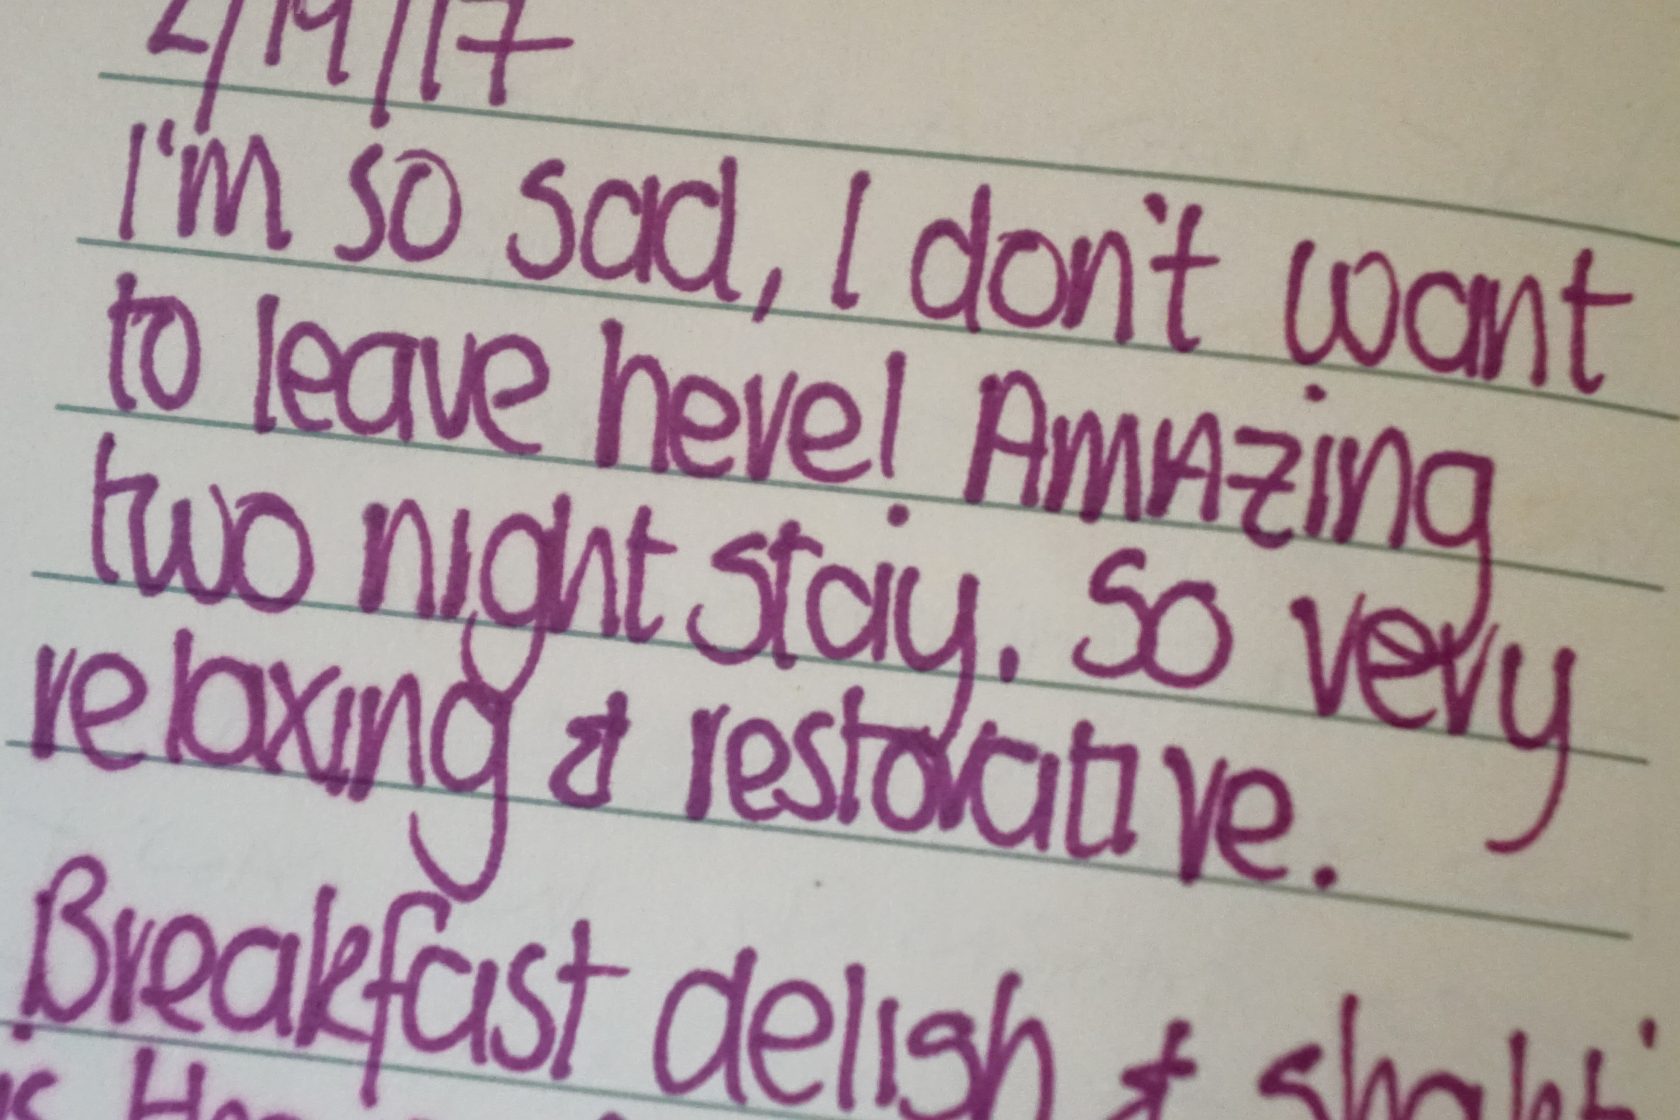 2/19/17
I'm so sad, I don't want
to leave here! Amazing
two night stay. So very
relaxing & restorative.
Breakfast delish &
is